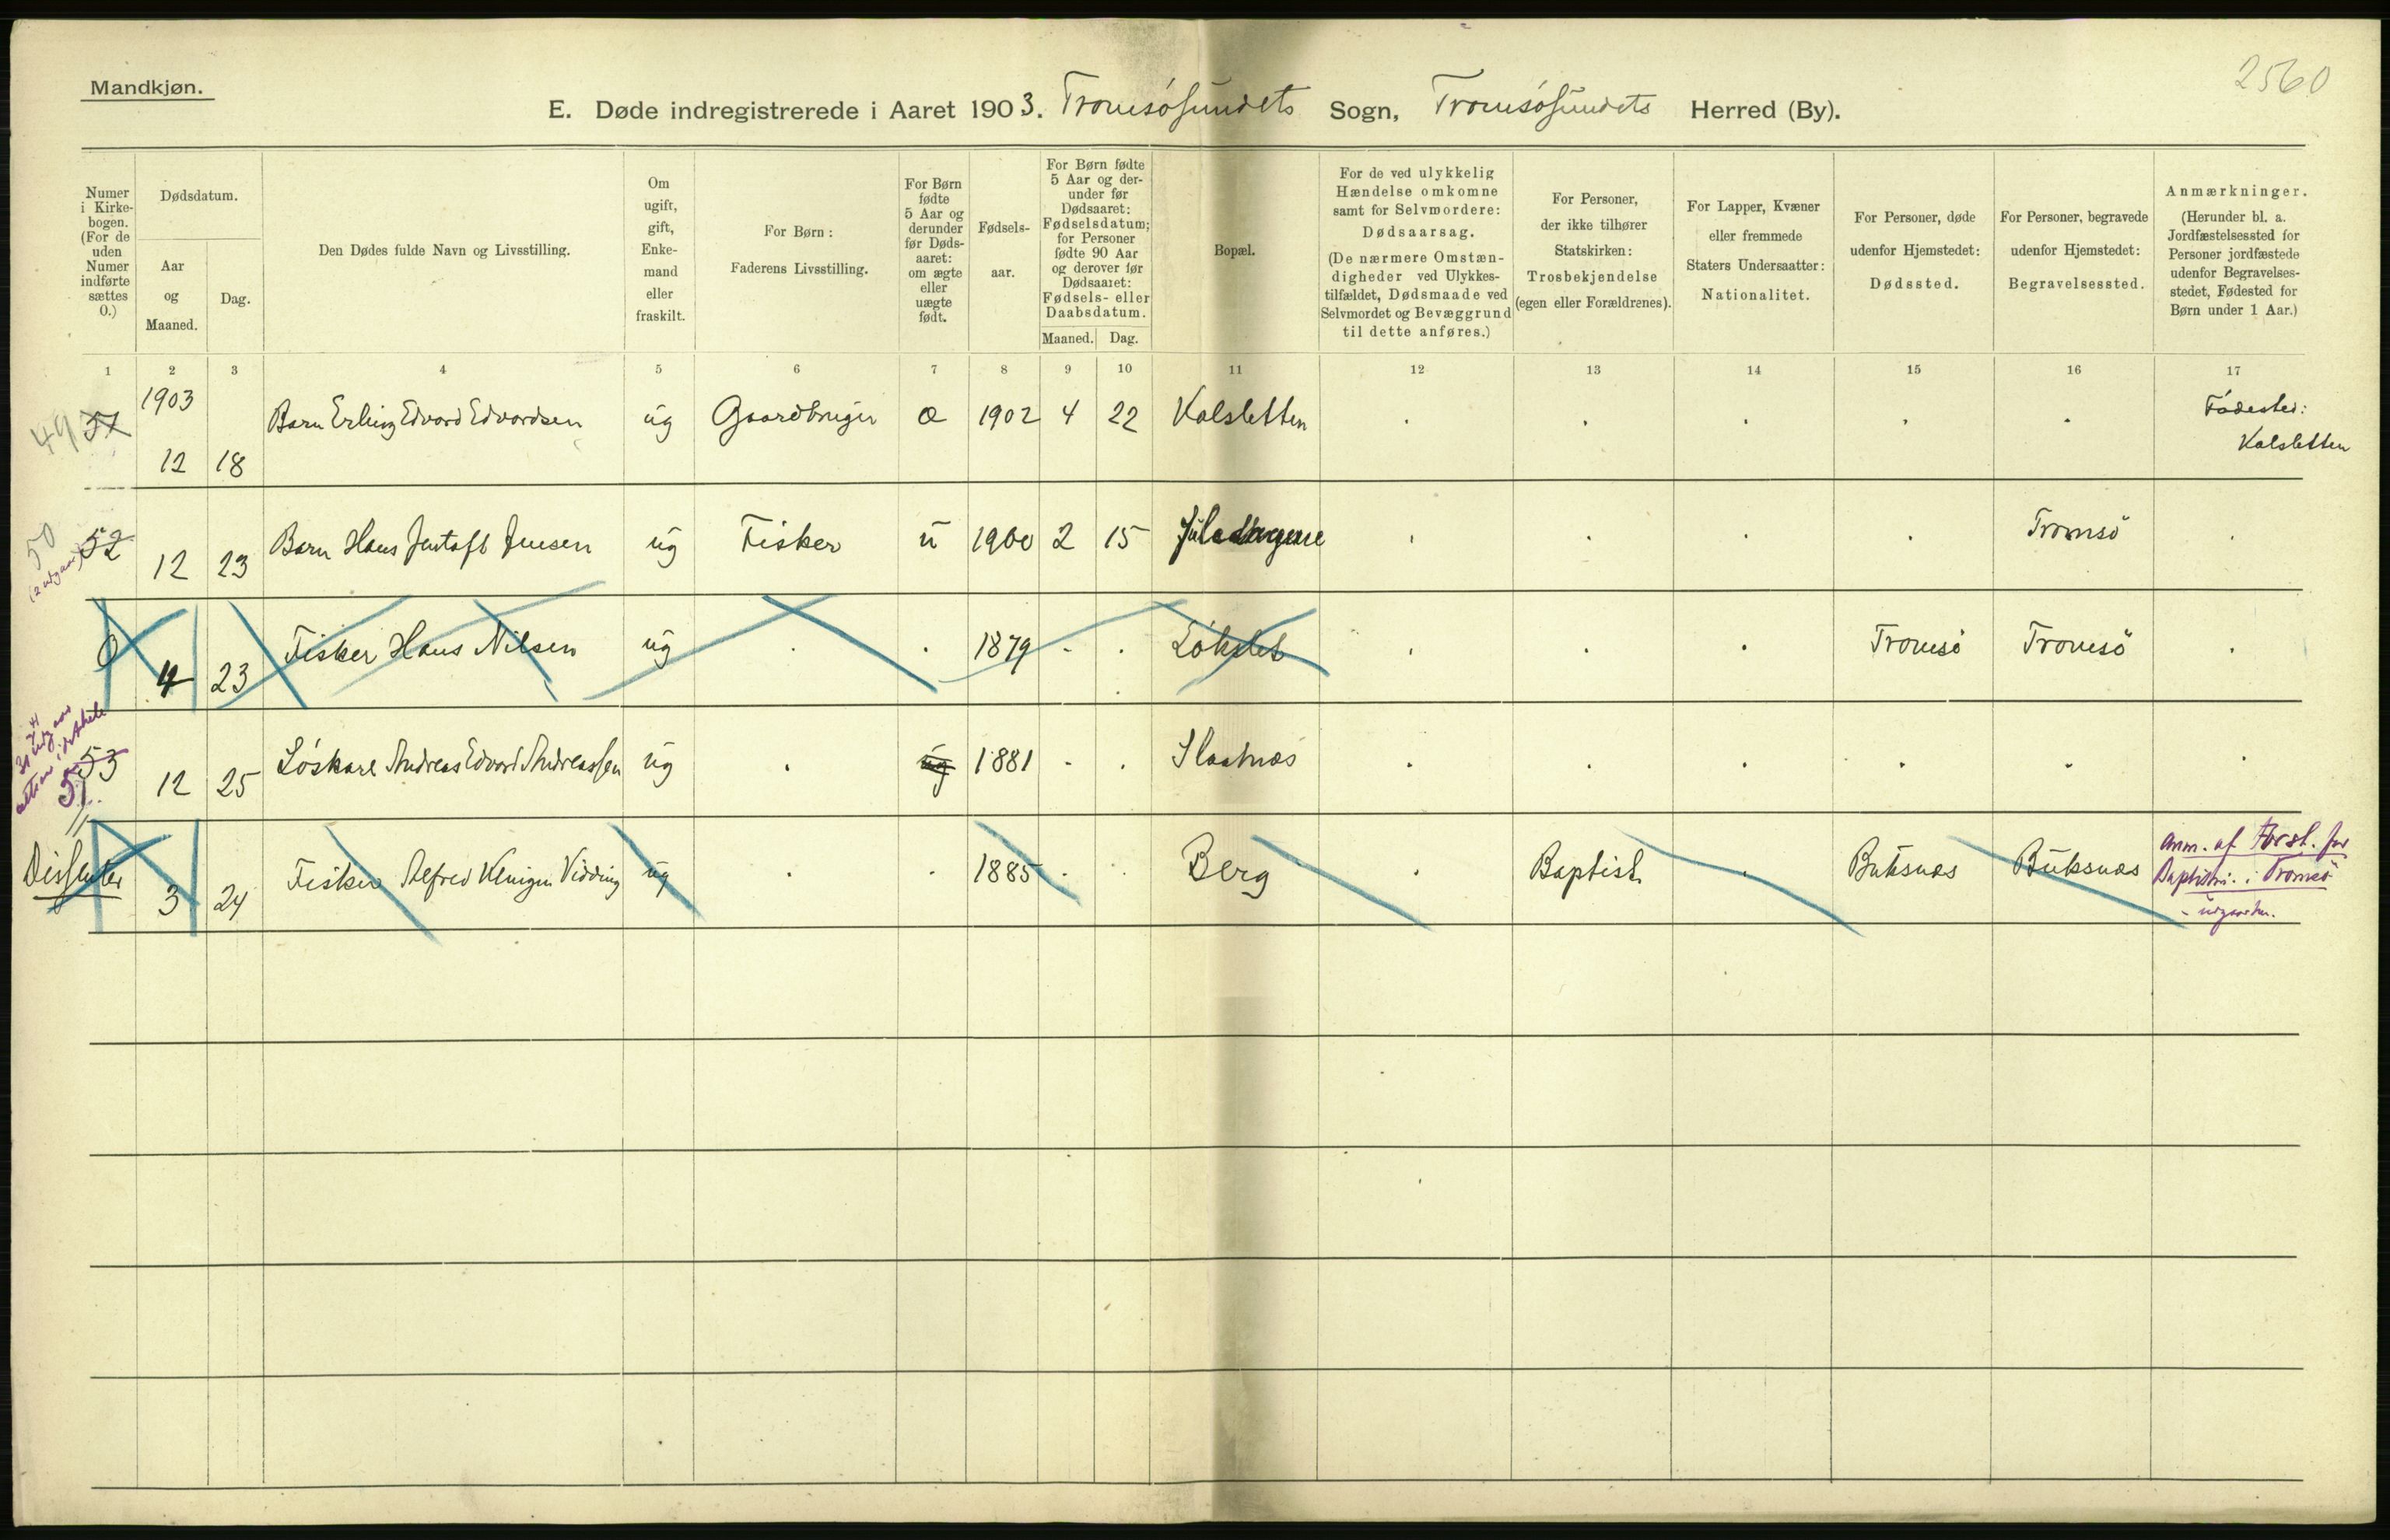 Mandkjøn.
2560
E. Døde indregistrerede i Aaret 1903. Tromsøsundets Sogn, Tromsøsundets Herred (By).
Numer i Kirkebogen. (For de uden Numer indførte sættes 0.)
Dødsdatum.
Aar og Maaned.
Dag.
Den Dødes fulde Navn og Livsstilling.
Om ugift, gift, Enkemand eller fraskilt.
For Børn: Faderens Livsstilling.
For Børn fødte 5 Aar og derunder før Dødsaaret: om ægte eller uægte født.
Fødselsaar.
For Børn fødte 5 Aar og derunder før Dødsaaret: Fødselsdatum; for Personer fødte 90 Aar og derover før Dødsaaret: Fødsels- eller Daabsdatum.
Maaned. Dag.
Bopæl.
For de ved ulykkelig Hændelse omkomne samt for Selvmordere: Dødsaarsag. (De nærmere Omstændigheder ved Ulykkestilfældet, Dødsmaade ved Selvmordet og Bevæggrund til dette anføres.)
For Personer, der ikke tilhører Statskirken: Trosbekjendelse (egen eller Forældrenes).
For Lapper, Kvæner eller fremmede Staters Undersaatter: Nationalitet.
For Personer, døde udenfor Hjemstedet: Dødssted.
For Personer, begravede udenfor Hjemstedet: Begravelsessted.
Anmærkninger. (Herunder bl. a. Jordfæstelsessted for Personer jordfæstede udenfor Begravelsesstedet, Fødested for Børn under 1 Aar.)
1 2 3 4 5 6 7 8 9 10 11 12 13 14 15 16 17
49 51 1903 12 18 Barn Erling Edvard Edvardsen ug Gaardbruger æ 1902 4 22 Kalsletten Fødested: Kalsletten
50 52 12 23 Barn Hans Jentoft Jensen ug Fisker u 1900 2 15 Tromsö
0 4 23 Fisker Hans Nilsen ug 1879 Løkslet Tromsö Tromsö
51 53 12 25 Løskarl Andreas Edvard Andreassen ug ug 1881 Slaatnæs
Dissenter 3 24 Fisker Alfred Vidding ug 1885 Berg Baptist Buksnæs Buksnæs Anm. af Forst. for Baptistm. i Tromsö - udgaar her.